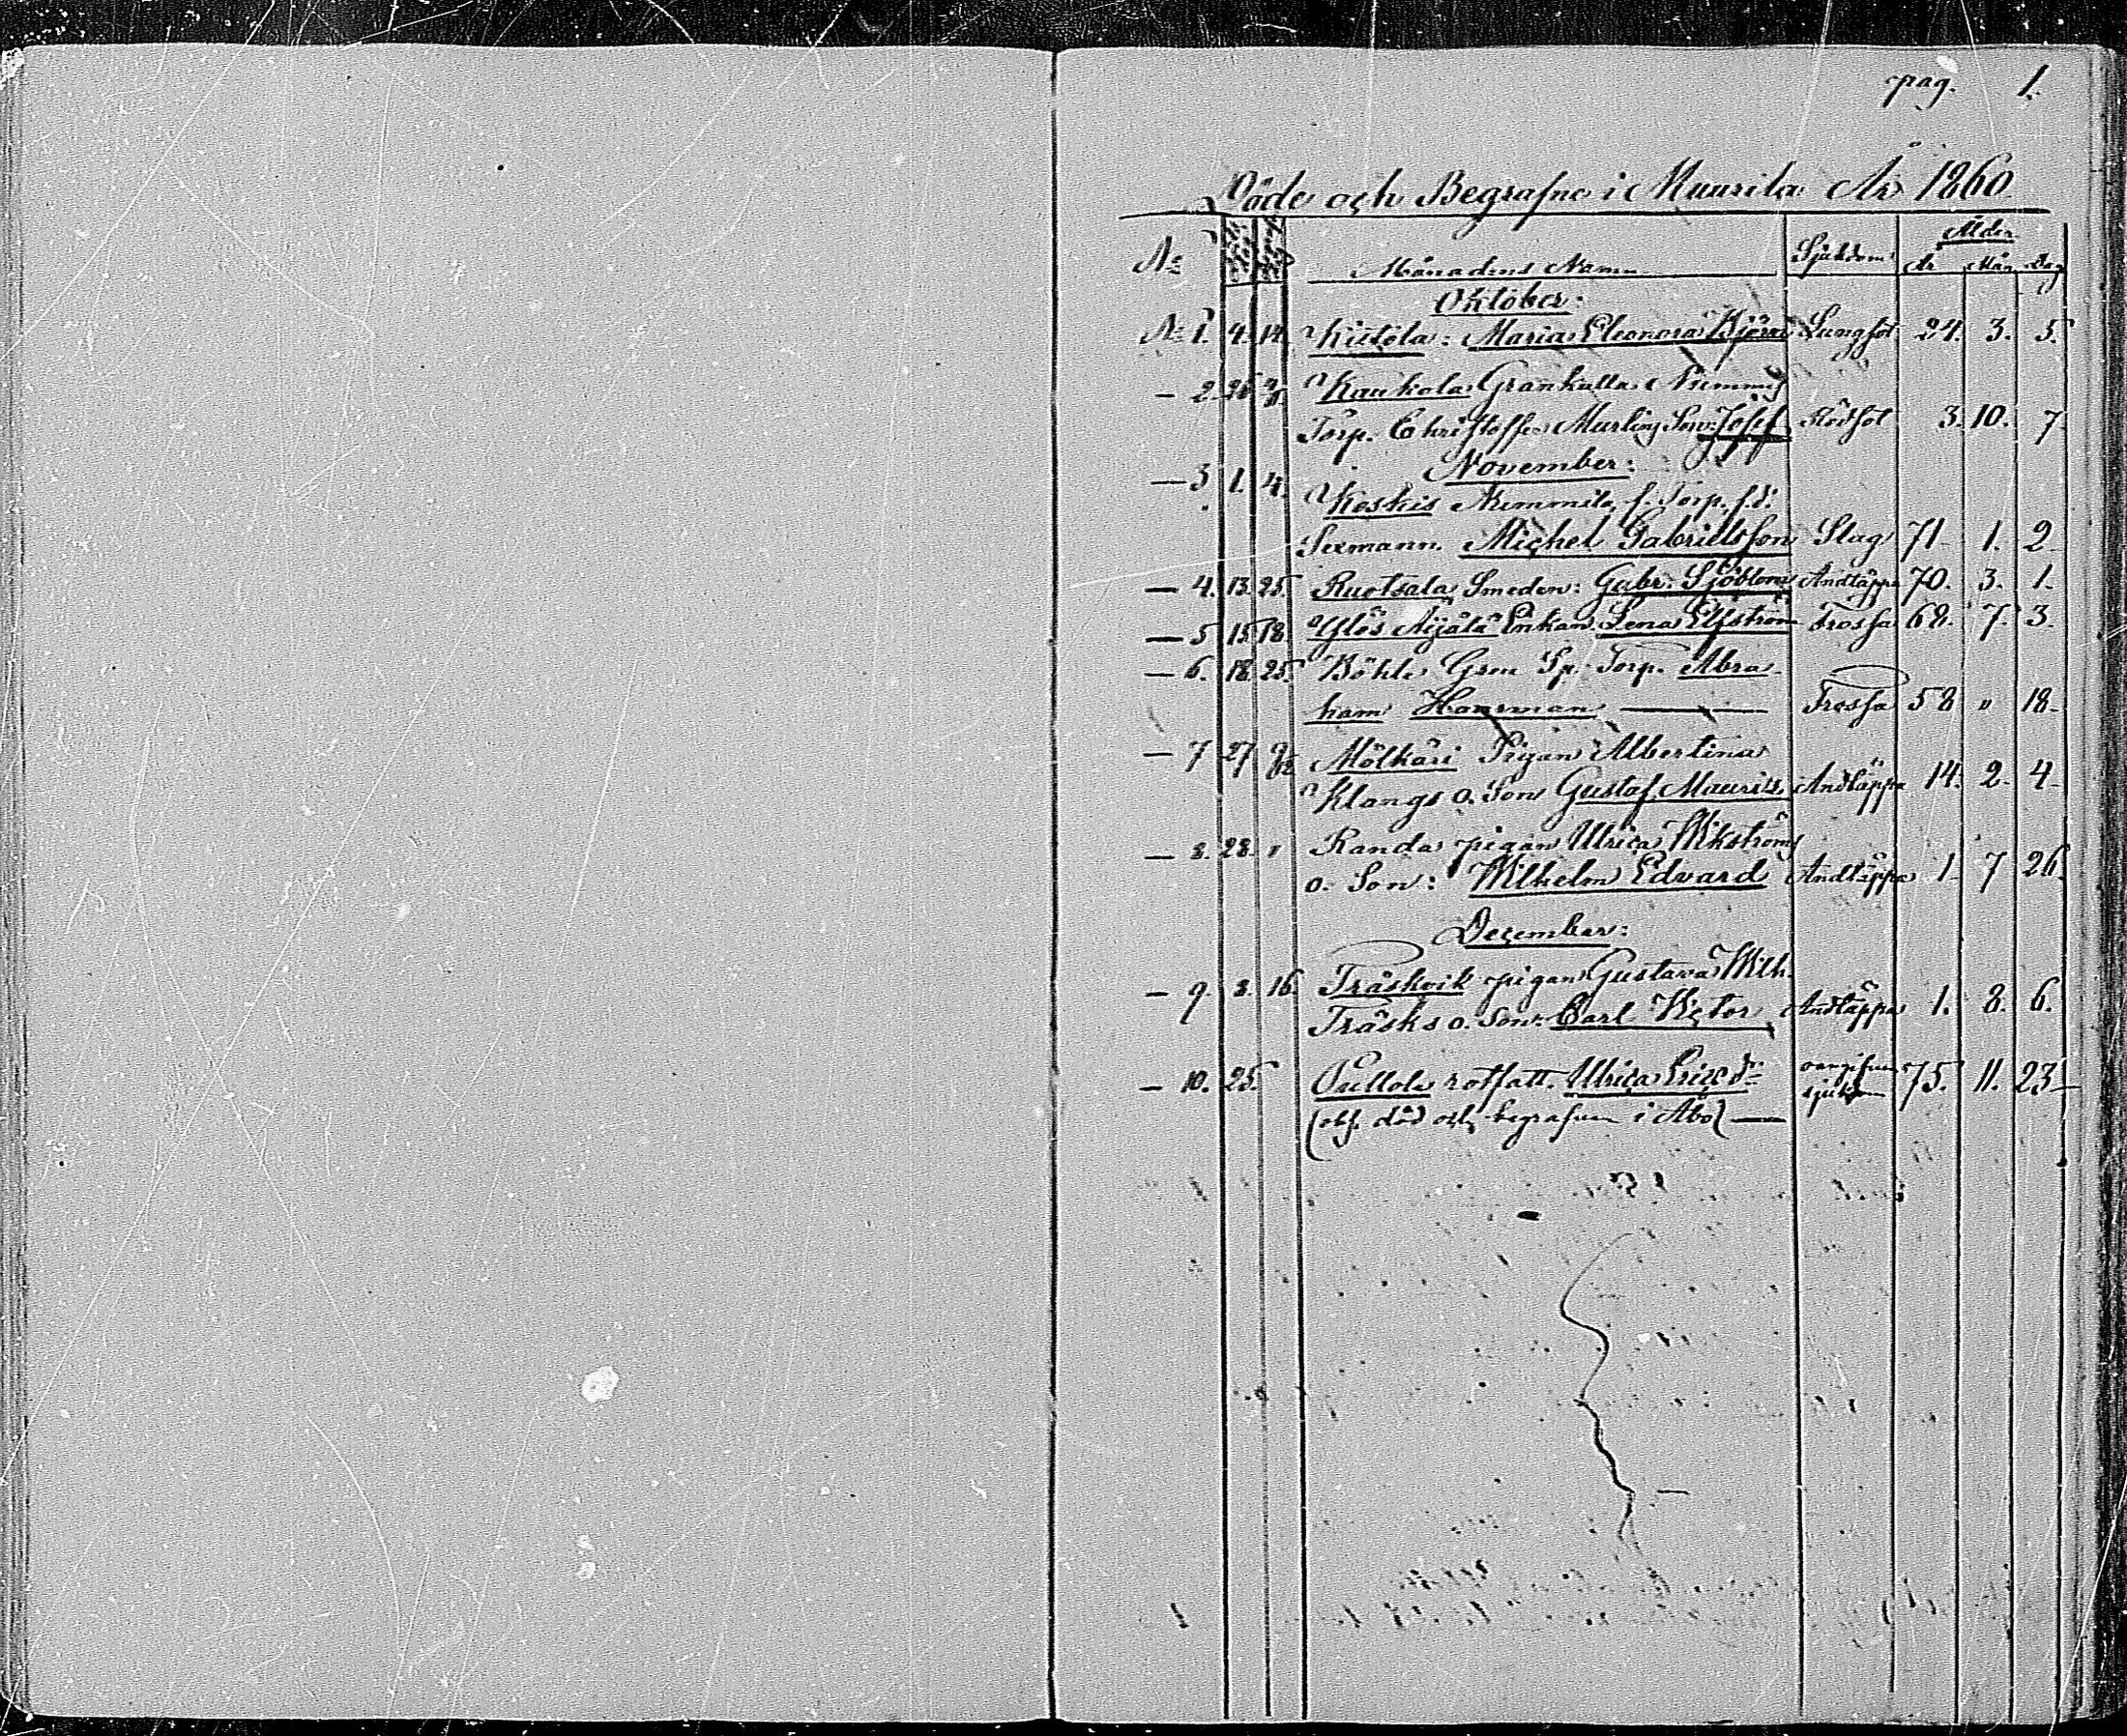 pag. 1.
Döde och Begrafne i Muurila År 1860
No Månadens Namn Sjukdom Ålder
År Mån. Dag
Oktober.
No 1. 4. 14. Kistola: Maria Eleonora Björn Lungsot 24. 3. 5.
- 2. 26 Kaukola Grankulla Nummis
Torp. Christoffer Murling Son: Josef Rödsot 3. 10. 7.
November:
- 3 1. 4. Koskis Nummila f. Torp. f.d.
Sexmann. Michel Gabrielsson Slag 71 1. 2
- 4. 13. 25. Ruotsala Smeden: Gabr. Sjöblom Andtäppa 70. 3. 1.
- 5 15 18. Yløs Äijälä Enkan Lena Elfström Frossa 68. 7. 3.
- 6. 18. 25. Böhle Gren Sp. Torp. Abra-
ham Hansman Frossa 58 " 18-
- 7 27 9/12 Mölkäri Pigan Albertina
Klangs o. Son Gustaf Maurits Andtäppa 14. 2. 4.
- 8. 28. " Randa pigan Ulrica Wikströms
o. Son: Wilhelm Edvard Andtäppa 1 7 26.
December:
- 9. 8. 16 Träskvik pigan Gustava Wilh.
Träsks o. Son: Carl Victor Andtäppa 1. 8. 6.
- 10. 25. Pullola rotfatt. Ulrica Ericsdr oangifven 75. 11. 23
sjukdom
(obs. död och begrafven i Åbo)